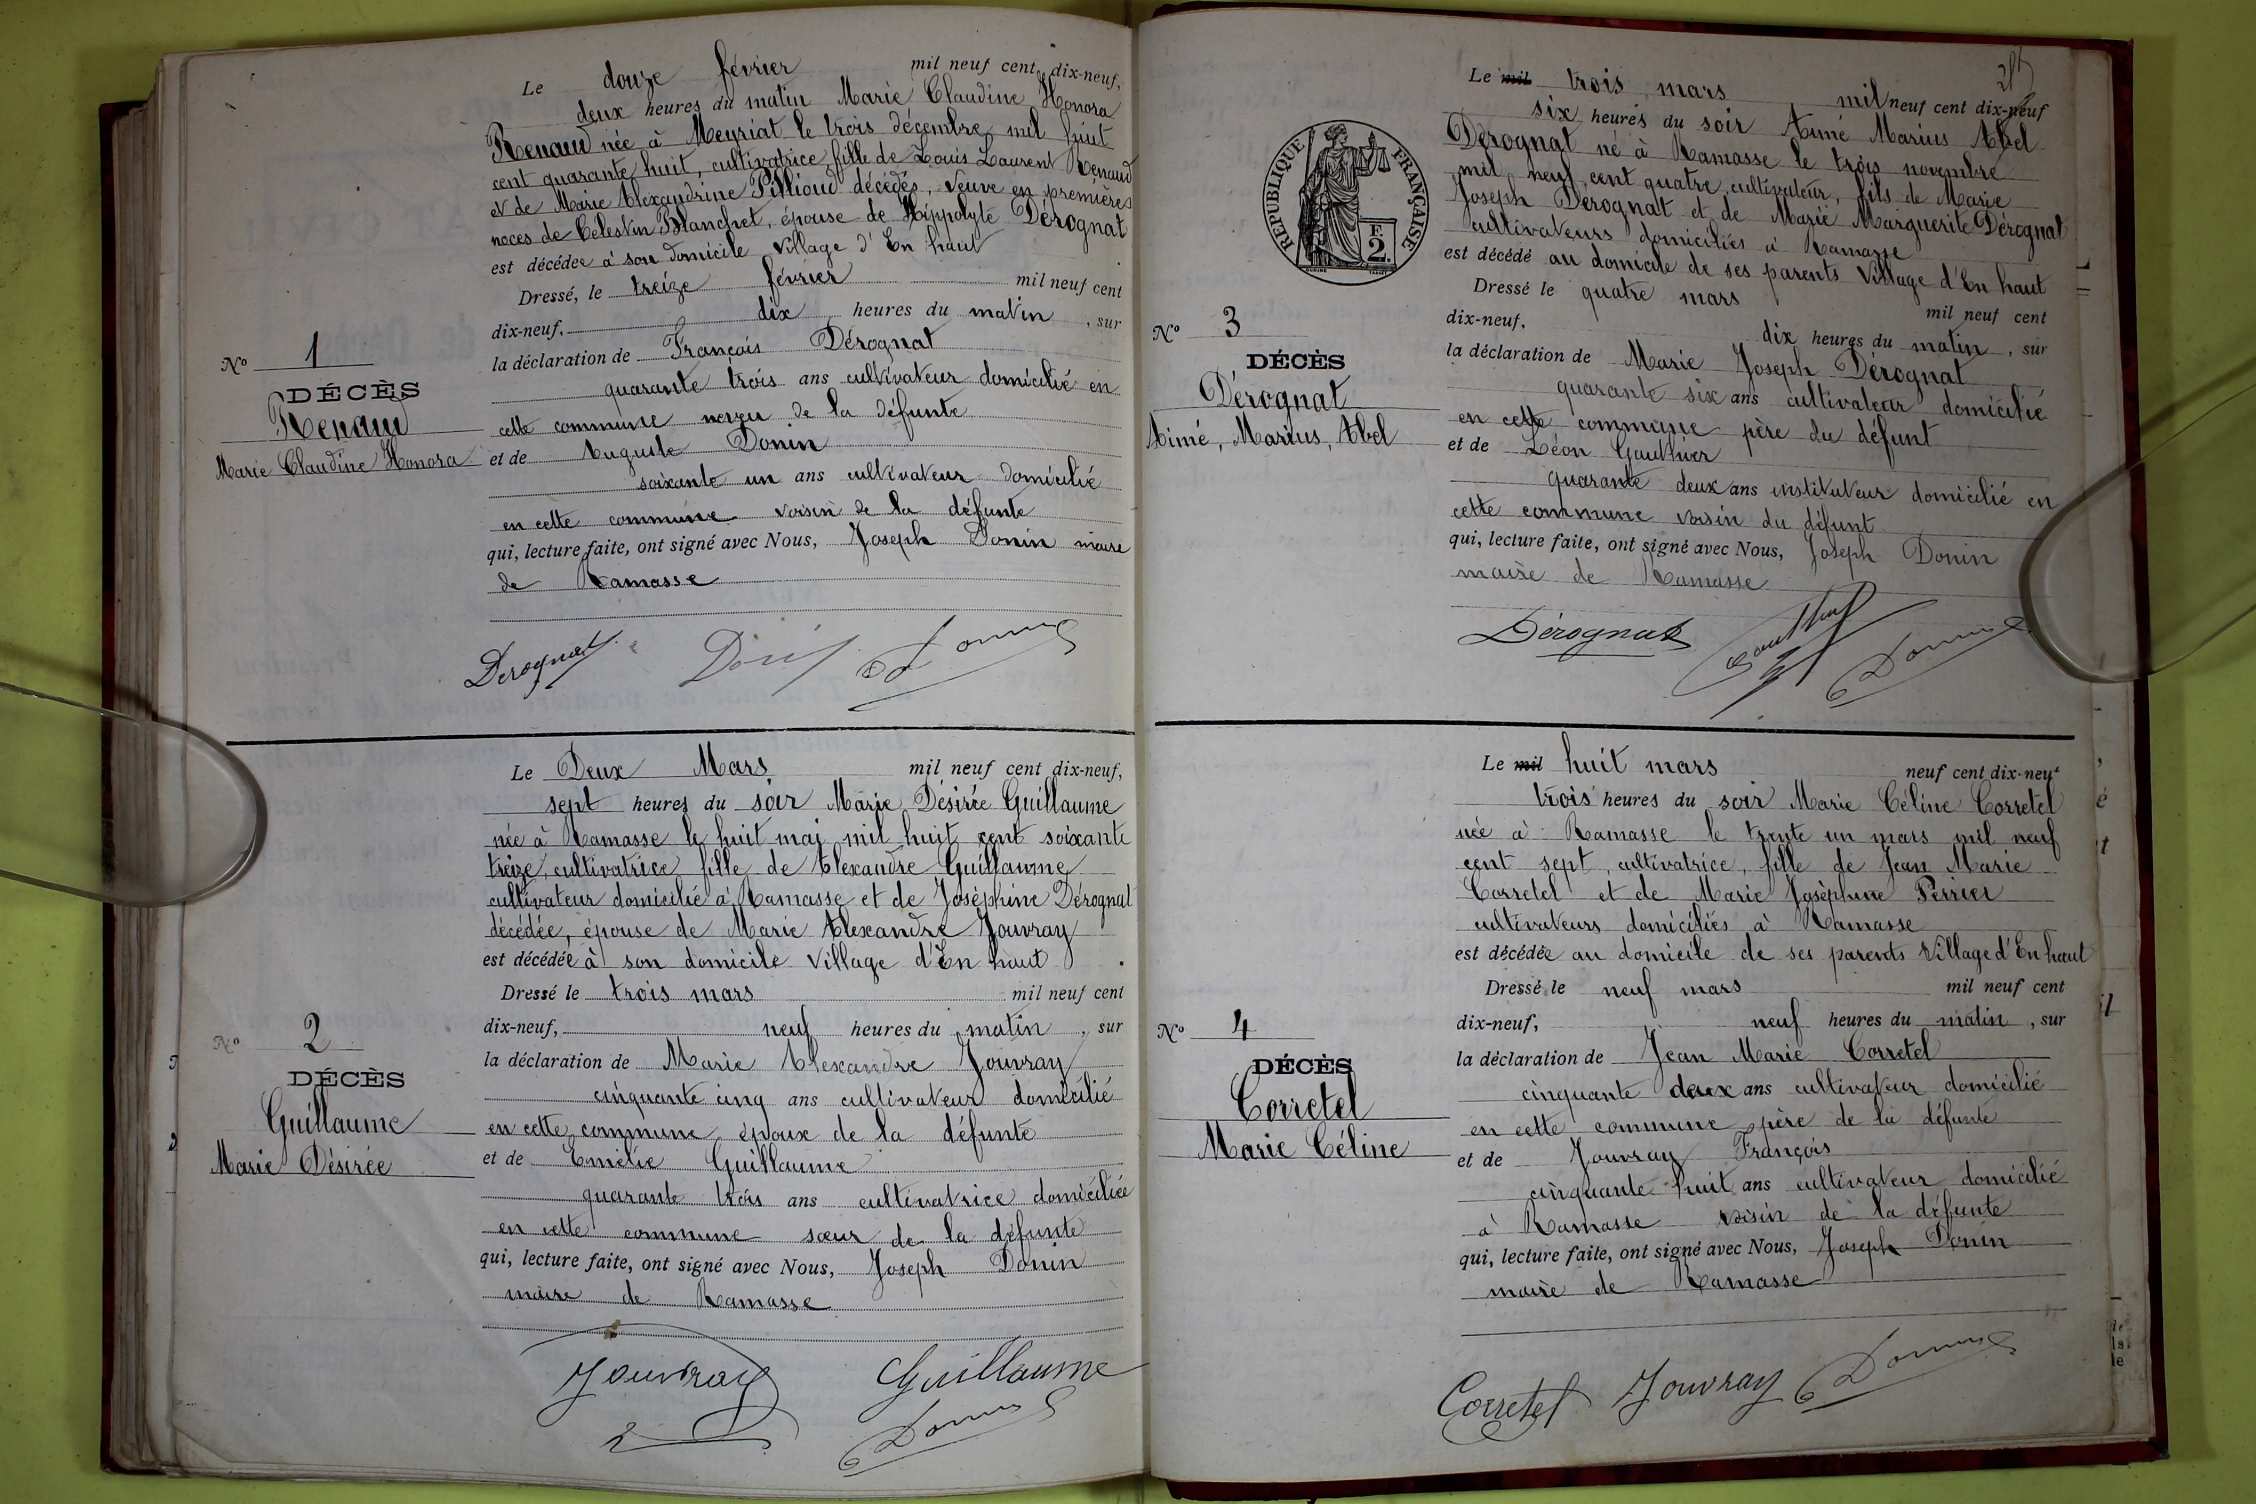 Le douze février mil neuf cent dix-neuf,
deux heures du matin Marie Claudine Honora
Renaud née à Meyriat le trois décembre mil huit
cent quarante huit, cultivatrice, fille de Louis Laurent Renaud
et de Marie Alexandrine Pillioud décédés, veuve en premières
noces de Célestin Blanchet, épouse de Hippolyte Dérognat
est décédée à son domicile village d'En haut
Dressé, le treize février mil neuf cent
dix-neuf, dix heures du matin, sur
la déclaration de François Dérognat
quarante trois ans cultivateur domicilié en
cette commune neveu de la défunte
et de Auguste Donin
soixante un ans cultivateur domicilié
en cette commune voisin de la défunte
qui, lecture faite, ont signé avec Nous, Joseph Donin maire
de Ramasse
Nº 1
DÉCÈS
Renaud
Marie Claudine Honora
Derognat
Donin
Le Deux Mars mil neuf cent dix-neuf,
sept heures du soir Marie Désirée Guillaume
née à Ramasse le huit mai mil huit cent soixante
treize, cultivatrice, fille de Alexandre Guillaume
cultivateur domicilié à Ramasse et de Joséphine Dérognat
décédée, épouse de Marie Alexandre Jouvray
est décédée à son domicile village d'En haut
Dressé le trois mars mil neuf cent
dix-neuf, neuf heures du matin, sur
la déclaration de Marie Alexandre Jouvray
cinquante cinq ans cultivateur domicilié
en cette commune, époux de la défunte
et de Emélie Guillaume
quarante trois ans cultivatrice domiciliée
en cette commune sœur de la défunte
qui, lecture faite, ont signé avec Nous, Joseph Donin
maire de Ramasse
Nº 2
DÉCÈS
Guillaume
Marie Désirée
Jouvray Guillaume
Donin
Le mil trois mars mil neuf cent dix-neuf
six heures du soir Aimé Marius Abel
Dérognat né à Ramasse le trois novembre
mil neuf cent quatre, cultivateur, fils de Marie
Joseph Dérognat et de Marie Marguerite Dérognat
cultivateurs domiciliés à Ramasse
est décédé au domicile de ses parents Village d'En haut
Dressé le quatre mars mil neuf cent
dix-neuf, dix heures du matin, sur
la déclaration de Marie Joseph Dérognat
quarante six ans cultivateur domicilié
en cette commune père du défunt
et de Léon Gauthier
quarante deux ans instituteur domicilié en
cette commune voisin du défunt
qui, lecture faite, ont signé avec Nous, Joseph Donin
maire de Ramasse
RÉPUBLIQUE FRANÇAISE
F.
2.
Nº 3
DÉCÈS
Dérognat
Aimé, Marius, Abel
Dérognat Gauthier Donin
Le mil huit mars neuf cent dix-neuf
trois heures du soir Marie Céline Corretel
née à Ramasse le trente un mars mil neuf
cent sept, cultivatrice, fille de Jean Marie
Corretel et de Marie Joséphine Perrier
cultivateurs domiciliés à Ramasse
est décédée au domicile de ses parents Village d'En haut
Dressé le neuf mars mil neuf cent
dix-neuf, neuf heures du matin, sur
la déclaration de Jean Marie Corretel
cinquante deux ans cultivateur domicilié
en cette commune père de la défunte
et de Jouvray François
cinquante huit ans cultivateur domicilié
à Ramasse voisin de la défunte
qui, lecture faite, ont signé avec Nous, Joseph Donin
maire de Ramasse
Nº 4
DÉCÈS
Corretel
Marie Céline
Corretel Jouvray Donin